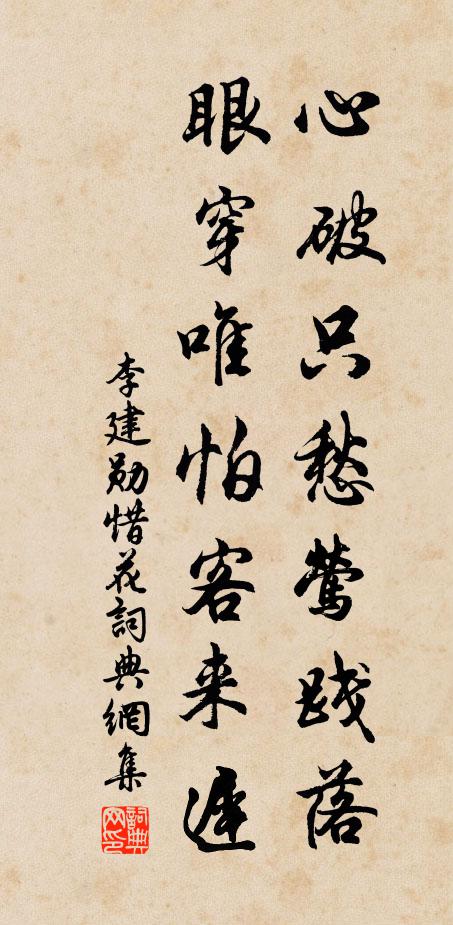 心破只愁莺践落
眼穿唯怕客来遲
李建勋惜花詞典網集
詞典网印